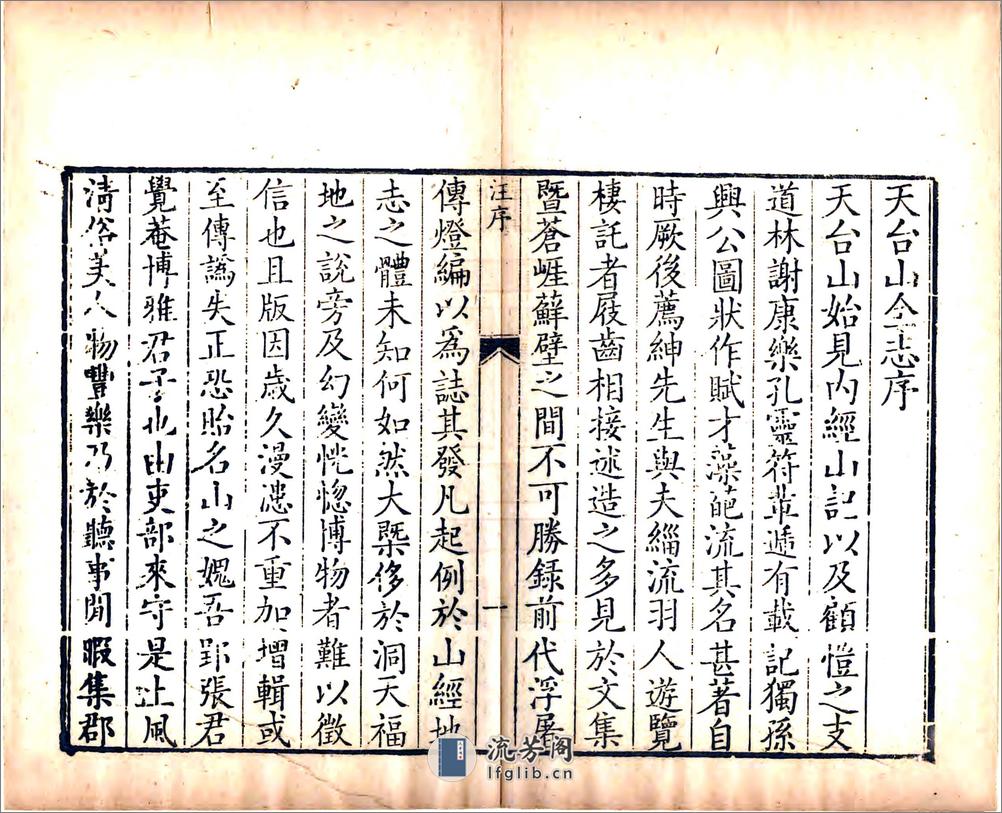 天台山全志序
天台山始見內經山記以及顧愷之支
道林謝康樂孔靈符輩遞有載記獨孫
興公圖狀作賦才藻葩流其名甚著自
時厥後薦紳先生與夫緇流羽人遊覽
棲託者屐齒相接述造之多見於文集
暨蒼崕蘚壁之間不可勝録前代浮屠
汪序
一
傳燈編以爲誌其發凡起例於山經地
志之體未知何如然大槩侈於洞天福
地之說旁及幻變恍惚博物者難以徵
信也且版因歲久漫漶不重加增輯或
至傳譌失正恐貽名山之媿吾郢張君
覺菴博雅君子也由吏部來守是土風
淸俗美人物豐樂乃於聽事閒暇集郡
流芳阁
lfglib.cn